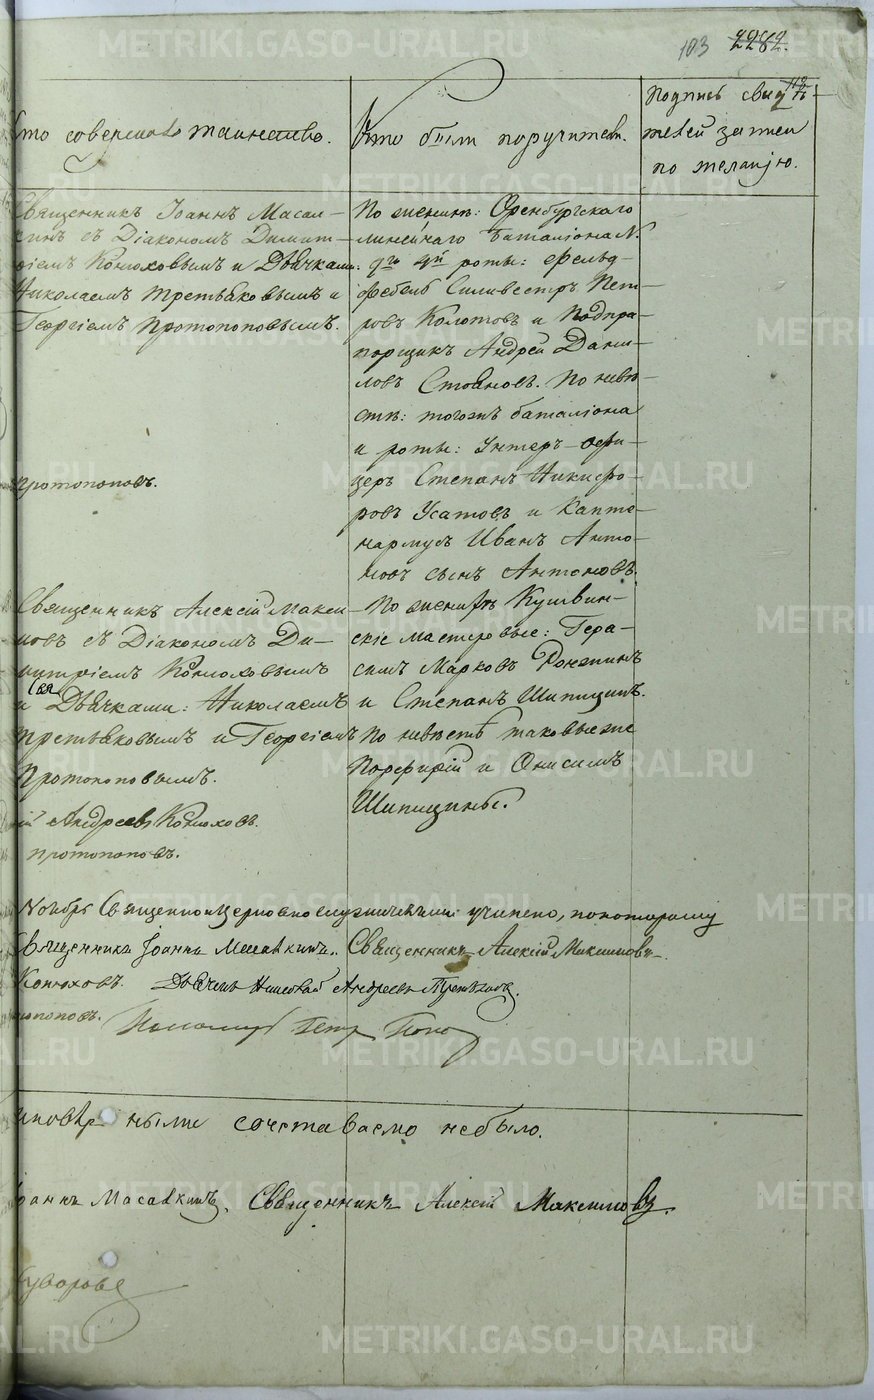 103 2282.
112
Кто совершалъ таинство.
Кто были поручители.
Подпись свидѣ-
телей записи
по желанiю.
Священникъ Iоаннъ Масал-
кинъ съ Дiакономъ Димит-
рiемъ Конюховымъ и Дьячками:
Николаемъ Третьяковымъ и
Георгiемъ Протопоповымъ.
Протопоповъ.
По женихѣ: Оренбургскаго
линейнаго баталiона N.
роты: Фельд-
фебель Сильвестръ Пет-
ровъ Колотовъ и Подпра-
порщикъ Андрей Дани-
ловъ Стояновъ. По невѣ-
стѣ: тогожъ баталiона
и роты: Унтеръ-офи-
церъ Степанъ Никифо-
ровъ Усатовъ и Капте-
нармусъ Иванъ Анто-
новъ сынъ Антоновъ.
Священникъ Алексiй Макси-
мовъ съ Дiакономъ Ди-
митрiемъ Конюховымъ
и Дьячками: Николаемъ
Третьяковымъ и Георгiемъ
Протопоповымъ.
По женихѣ Кушвин-
скiе мастеровые: Гера-
симъ Марковъ
и Степанъ Шипицинъ.
По невѣстѣ таковые же
Порфирiй и Онисимъ
Шипицины.
Андреевъ Конюховъ.
Протопоповъ.
Ноябрь Священноицерковнослужителями учинено, покоторому
Священникъ Iоаннъ Масалкинъ. Священникъ Алексiй Максимовъ.
Конюховъ. Дьячекъ Николай Андреевъ Третьяковъ.
Пономарь Петръ Попов
ными сочетаваемо небыло.
Iоаннъ Масалкинъ. Священникъ Алексiй Максимовъ.
Суворовъ
METRIKI.GASO-URAL.RU